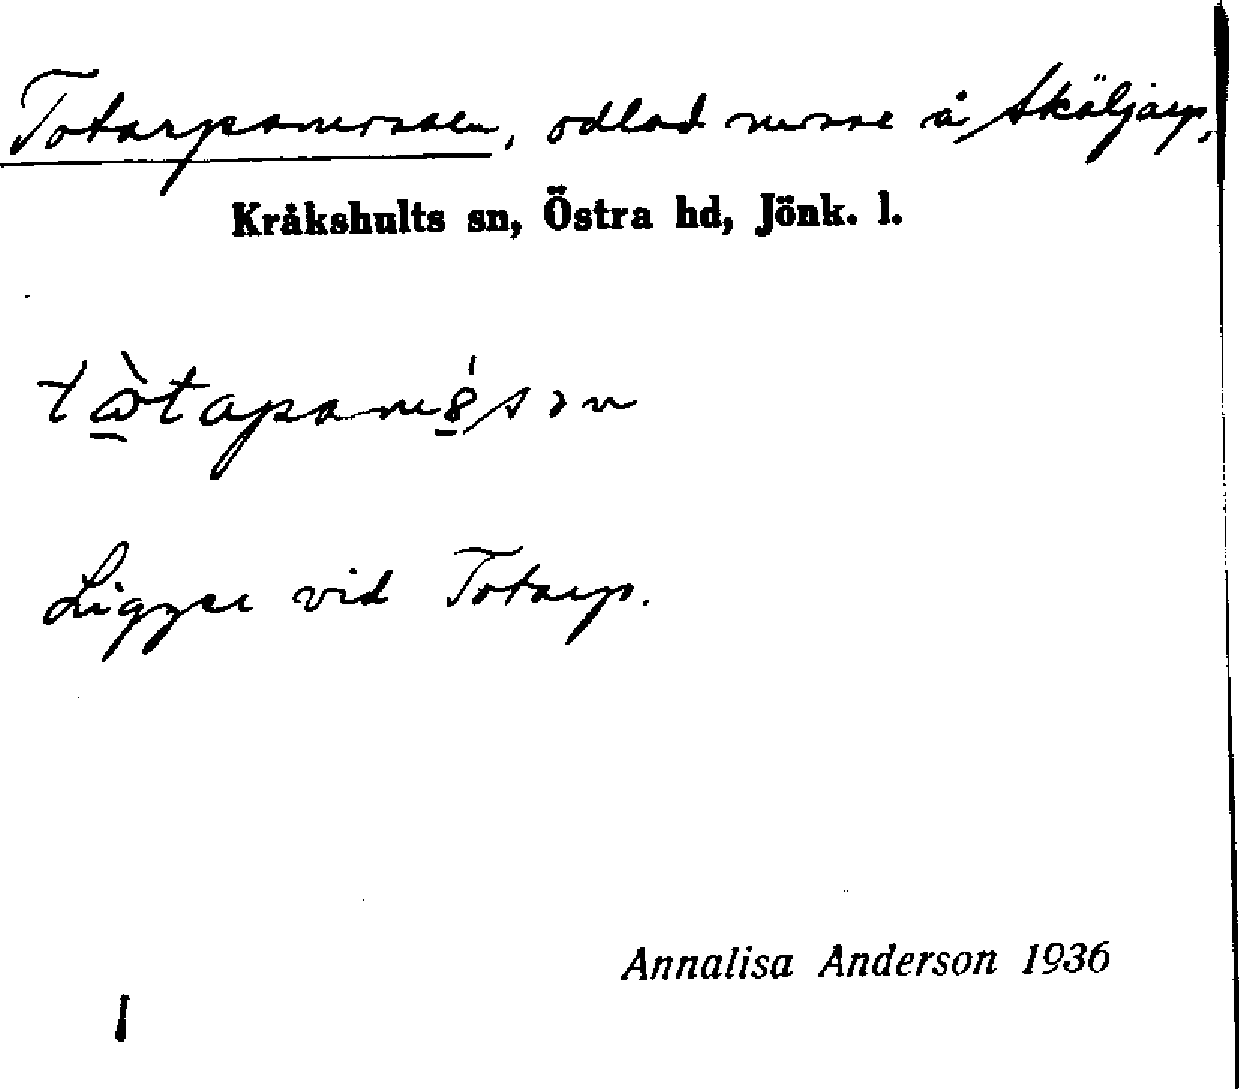 Totarpamossen, odlad mosse å Skäljarp,
Kråkshults sn, Östra hd, Jönk. l.
Ligger vid Totarp.
Annalisa Anderson 1936